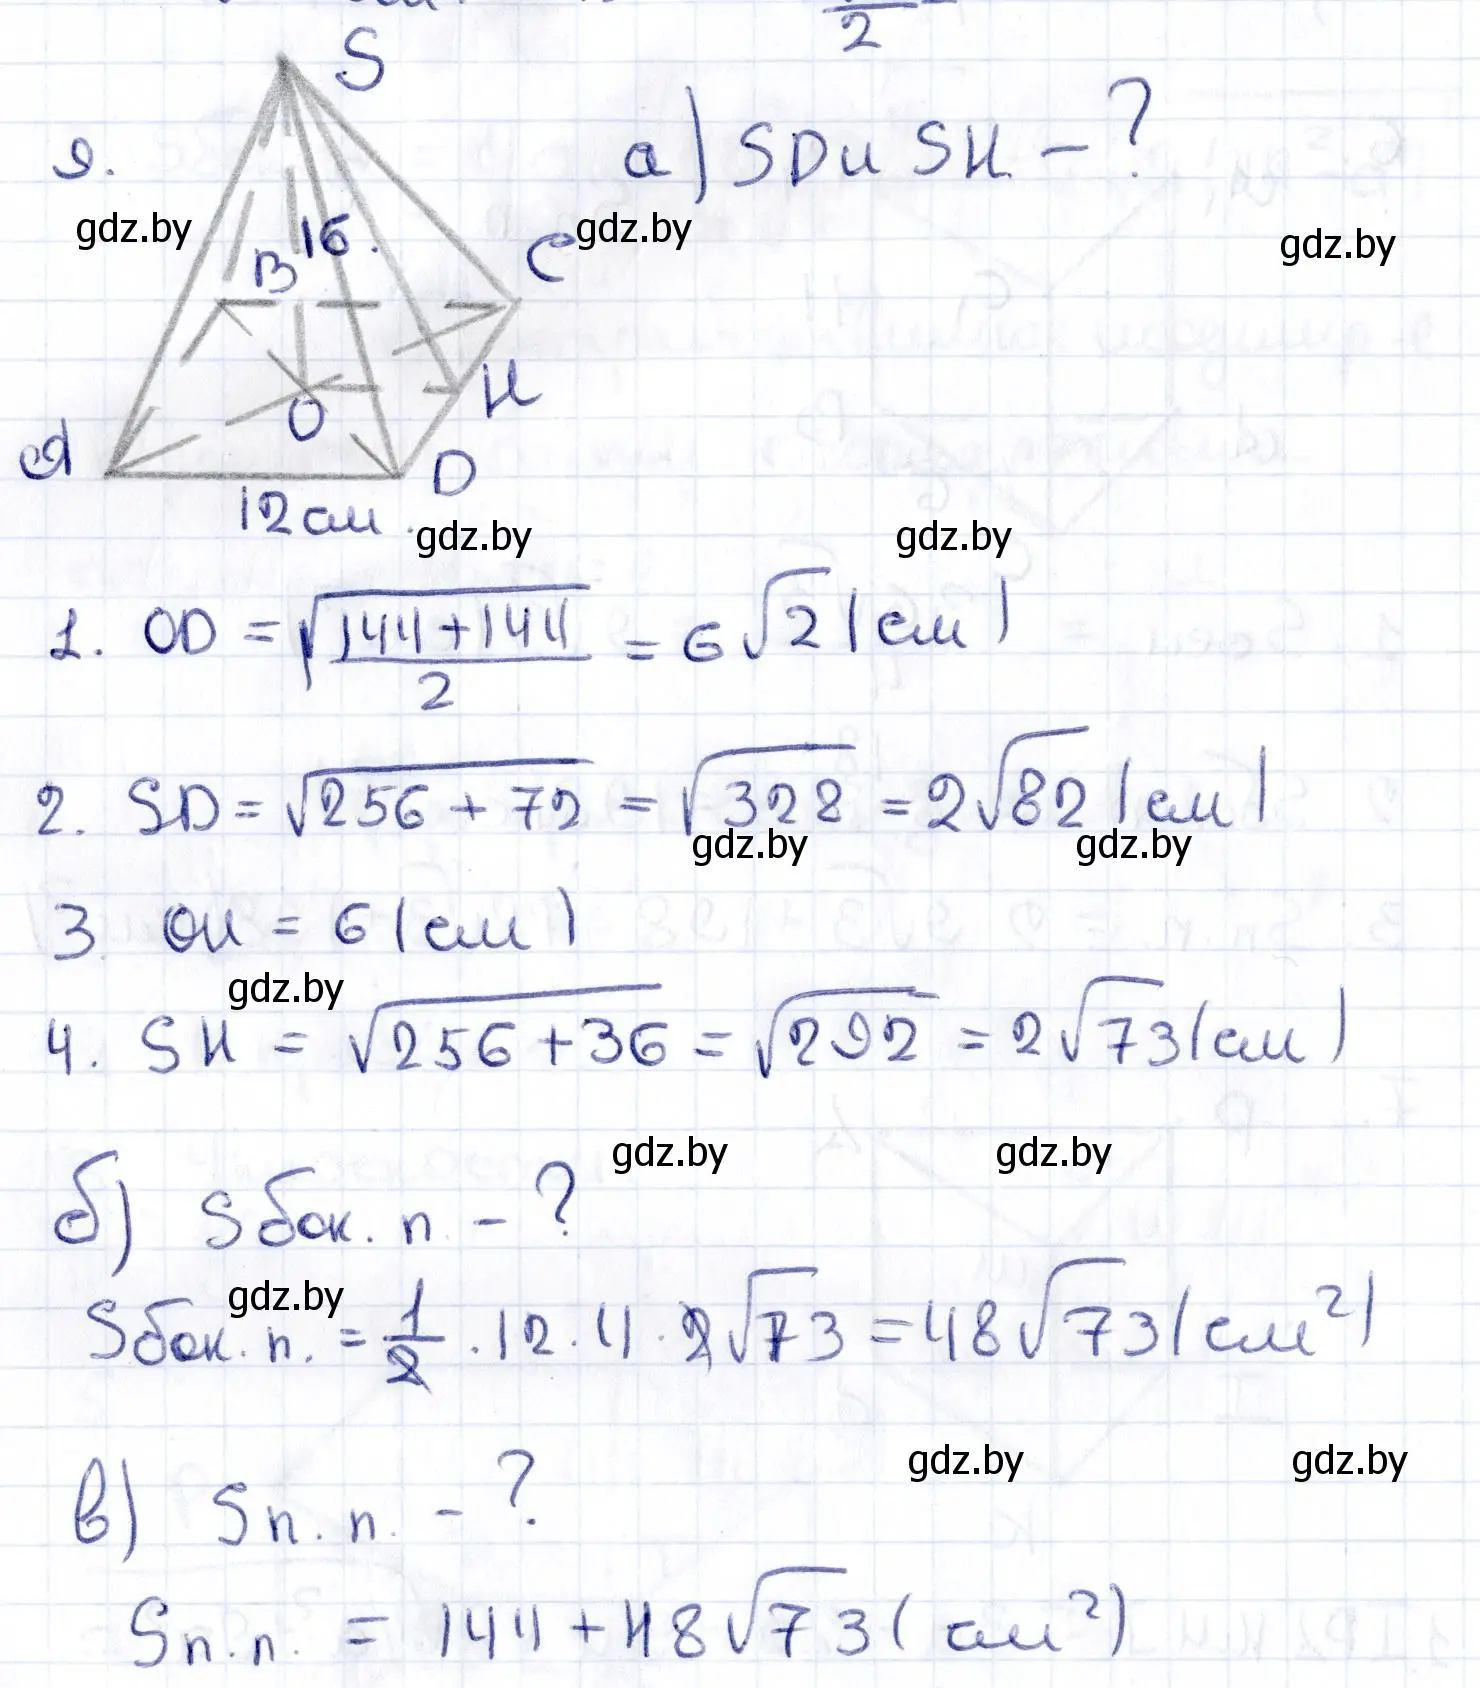 2
S
9.
а) SD и SH - ?
gdz.by
gdz.by
gdz.by
16.
B
C
H
O
A
D
12 см.
gdz.by
gdz.by
1. OD = √(144+144)/2 = 6√2 (см)
2. SD = √(256 + 72) = √328 = 2√82 (см)
gdz.by
gdz.by
3. OH = 6 (см)
gdz.by
4. SH = √(256+36) = √292 = 2√73 (см)
gdz.by
gdz.by
б) Sбок. п - ?
gdz.by
Sбок. п. = 1/2 · 12 · 4 · 2√73 = 48√73 (см²)
gdz.by
gdz.by
в) Sп. п. - ?
Sп.п. = 144 + 48√73 (см²)